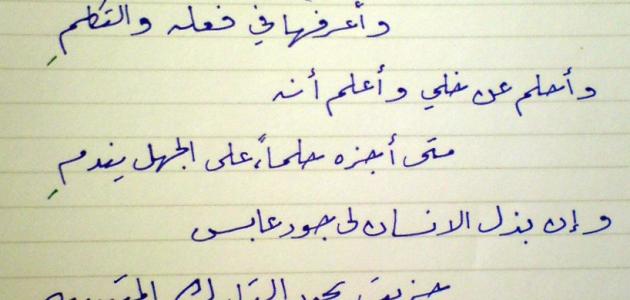 وأعرفها في فعله والتكلمِ
وأحلم عن خلي وأعلم أنه
متى أجزه حلماً، على الجهل يندمِ
وإن بذل الانسان لي جود عابس